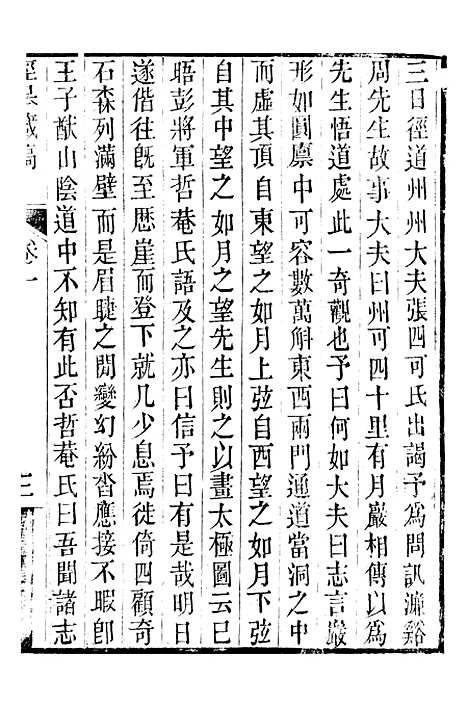 三日徑道州州大夫張四可氏出謁予爲問訊濂谿
周先生故事大夫曰州可四十里有月巖相傳以爲
先生悟道處此一奇觀也予曰何如大夫曰志言巖
形如圓廩中可容數萬斛東西兩門通道當洞之中
而虛其頂自東望之如月上弦自西望之如月下弦
自其中望之如月之望先生則之以畫太極圖云已
晤彭將軍哲菴氏語及之亦曰信予曰有是哉明日
遂偕往旣至歷崖而登下就几少息焉徙倚四顧奇
石森列滿壁而是眉睫之閒變幻紛沓應接不暇卽
王子猷山陰道中不知有此否哲菴氏曰吾聞諸志
藏稿
卷一
三